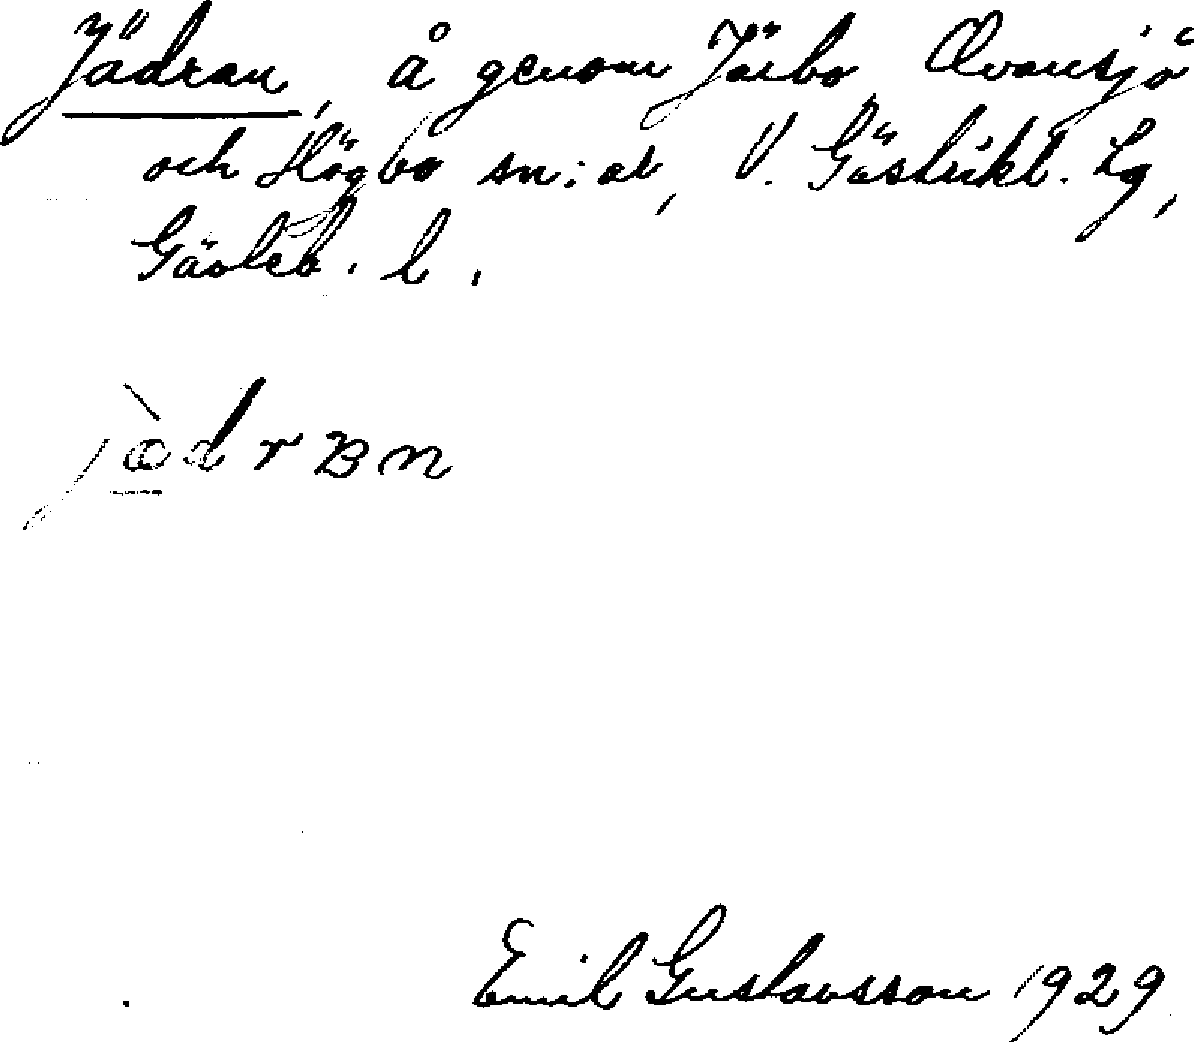 Jädran, å genom Järbo, Ovansjö
och Högbo sn:ar, V. Gästrikl. tg,
Gävleb. l.
jæ̀drʙn
Emil Gustavsson 1929